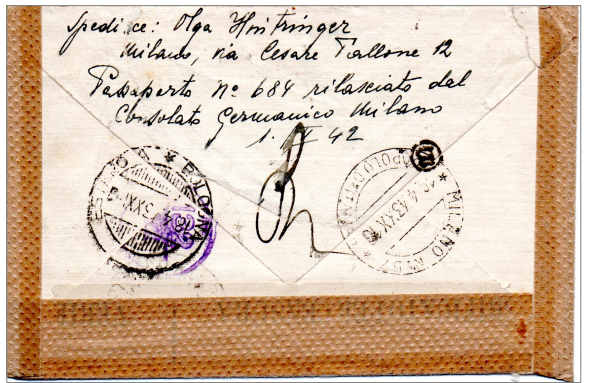 Spedisce: Olga Hintringer
Milano, via Cesare Tallone 12
Passaperto Nº 684 rilasciato dal
Consolato Germanico Milano
1. 42
BOLOGNA
4 XXI
MILANO
POPOLO D'ITALIA
4.43.XXI